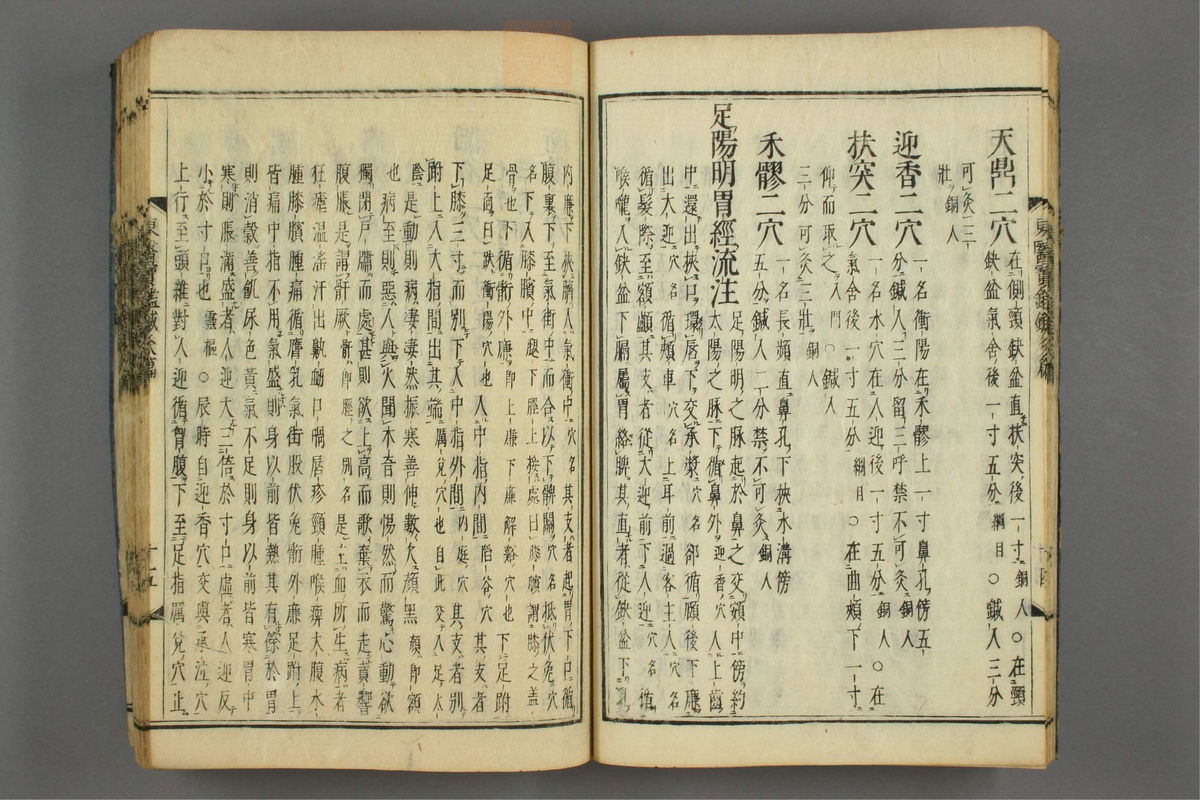 天鼎二穴 在側頸缺盆直扶突後一寸銅人○在頸
缺盆氣舍後一寸五分綱目○鍼入三分
可灸三
壯銅人
迎香二穴 一名衝陽在禾髎上一寸鼻孔傍五
分鍼入三分留三呼禁不可灸銅人
扶突二穴 一名水穴在人迎後一寸五分銅人○在
氣舍後一寸五分綱目○在曲頰下一寸
仰而取之入門○鍼入
三分可灸三壯銅人
禾髎二穴 一名長頻直鼻孔下挾水溝傍
五分鍼入二分禁不可灸銅人
足陽明胃經流注 足陽明之脉起於鼻之交頞中傍約
太陽之脉下循鼻外迎香穴入上齒
中還出挾口環唇下交承漿穴名却循頤後下廉
出大迎穴名循頰車穴名上耳前過客主人穴名
循髮際至額顱其支者從大迎前下人迎穴名循
喉嚨入缺盆下膈屬胃絡脾其直者從缺盆下乳
東醫寶鑑鍼灸篇
內廉下挾臍入氣衝中穴名其支者起胃下口循
腹裏下至氣街中而合以下髀關穴名抵伏兔穴
名下入膝臏中腿下脛上接處曰膝臏謂膝之盖
骨也下循䯒外廉卽上廉下廉解谿穴也下足跗
足面曰趺衝陽穴也入中指內間陷谷穴其支者
下膝三寸而別下入中指外間內庭穴其支者別
跗上入大指間出其端厲兌穴也自此交入足太
陰是動則病凄凄然振寒善伸數欠顔黑顔卽額
也病至則惡人與火聞木音則惕然而驚心動欲
獨閉戶牖而處甚則欲上高而歌棄衣而走賁響
腹脹是謂䯒厥䯒卽脛之別名是主血所生病者
狂瘧溫滛汗出鼽衂口喎唇疹頸腫喉痹大腹水
腫膝臏腫痛循膺乳氣街股伏兔䯒外廉足跗上
皆痛中指不用氣盛則身以前皆熱其有餘於胃
則消穀善飢尿色黃氣不足則身以前皆寒胃中
寒則脹滿盛者人迎大三倍於寸口虛者人迎反
小於寸口也靈樞○辰時自迎香穴交與承泣穴
上行至頭維對人迎循胸腹下至足指厲兌穴止
十五